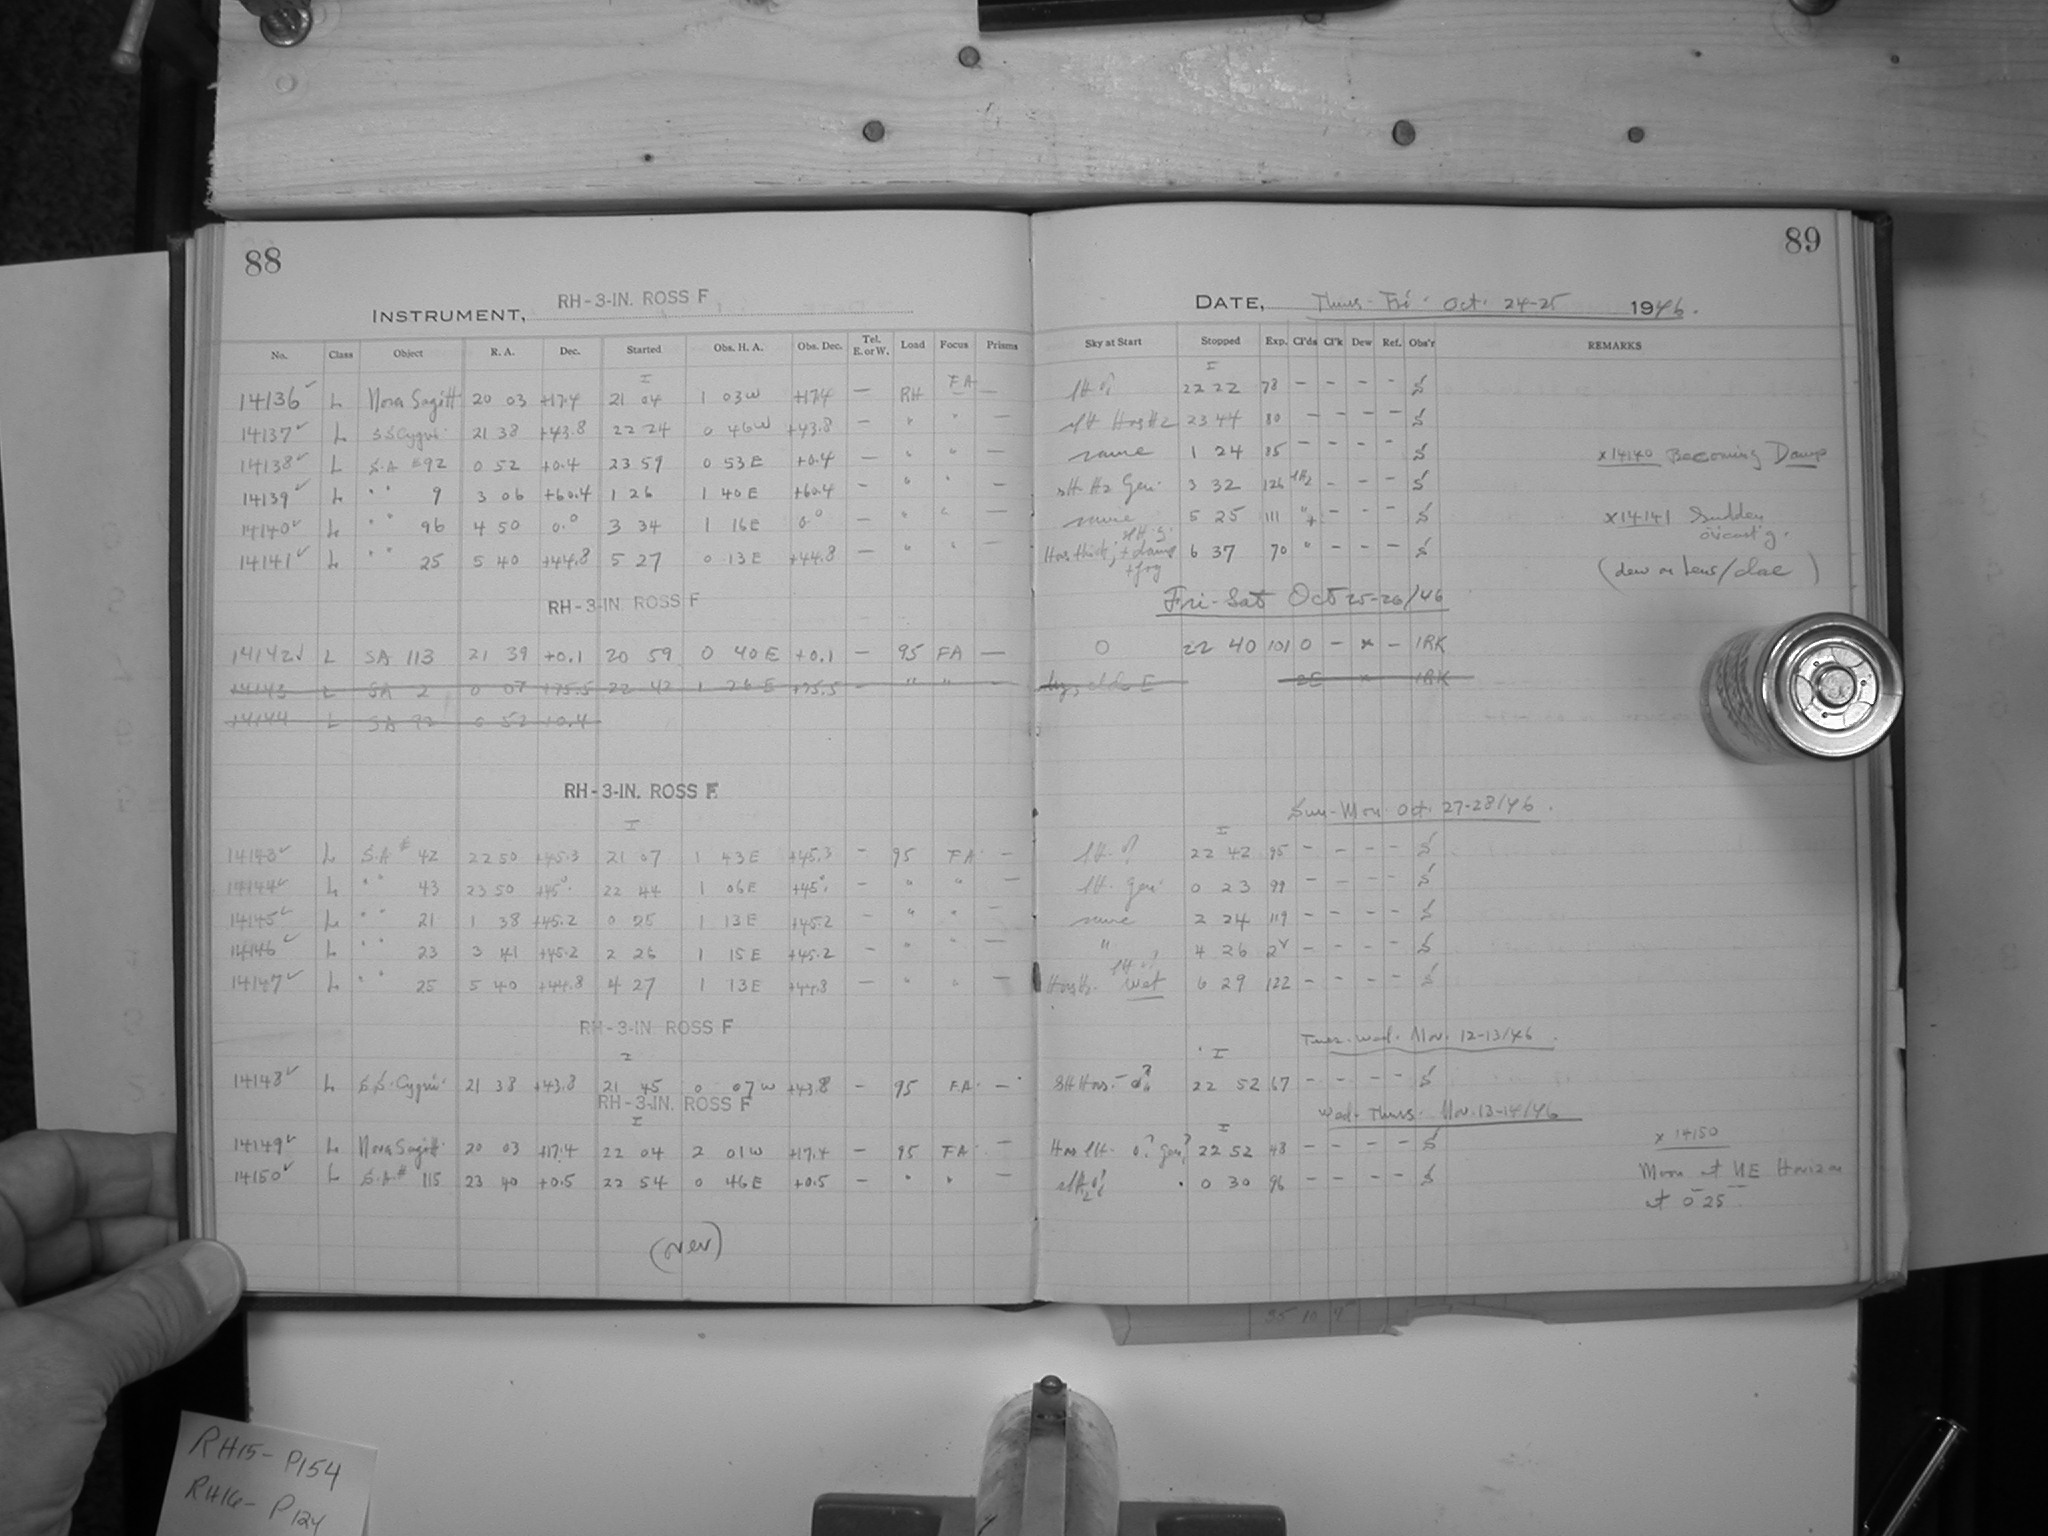 88
INSTRUMENT, RH-3-IN. ROSS F
No. Class Object R. A. Dec. Started Obs. H. A. Obs. Dec. Tel. E. or W. Load Focus Prisms
I
14136 ✓ L Nova Sagitt 20 03 +17.4 21 04 1 03W +17.4 — RH FA —
14137 ✓ L SS Cygni 21 38 +43.8 22 24 0 46W +43.8 — " " —
14138 ✓ L S.A #92 0 52 +0.4 23 59 0 53E +0.4 — " " —
14139 ✓ L " " 9 3 06 +60.4 1 26 1 40E +60.4 — " " —
14140 ✓ L " " 96 4 50 0.° 3 34 1 16E 0° — " " —
14141 ✓ L " " 25 5 40 +44.8 5 27 0 13E +44.8 — " " —
RH-3-IN. ROSS F
14142 ✓ L SA 113 21 39 +0.1 20 59 0 40E +0.1 — 95 FA —
14143 L SA 2 0 07 +75.5 22 42 1 26E +75.5 — " " —
14144 L SA 92 0 52 +0.4
RH-3-IN. ROSS F
I
14143 ✓ L S.A # 42 22 50 +45.3 21 07 1 43E +45.3 — 95 FA —
14144 ✓ L " " 43 23 50 +45° 22 44 1 06E +45° — " " —
14145 ✓ L " " 21 1 38 +45.2 0 25 1 13E +45.2 — " " —
14146 ✓ L " " 23 3 41 +45.2 2 26 1 15E +45.2 — " " —
14147 ✓ L " " 25 5 40 +44.8 4 27 1 13E +44.8 — " " —
RH-3-IN. ROSS F
2
14148 ✓ L S.S. Cygni 21 38 +43.8 21 45 0 07W +43.8 — 95 FA —
RH-3-IN. ROSS F
I
14149 ✓ L Nova Sagitt. 20 03 +17.4 22 04 2 01W +17.4 — 95 FA —
14150 ✓ L S.A# 115 23 40 +0.5 22 54 0 46E +0.5 — " " —
(over)
89
DATE, Thurs-Fri. Oct. 24-25 1946.
Sky at Start Stopped Exp. Cl'ds Cl'k Dew Ref. Obs'r REMARKS
I
22 22 78 — — — — S
23 44 80 — — — — S
same 1 24 85 — — — — S x14140 Becoming Damp
sH Hz Gen. 3 32 126 — — — S
same 5 25 111 — — — S x14141 Sudden
ov'cast'g.
+ damp 6 37 70 " — — — S
+ fog (dew on Lens/clae )
Fri-Sat Oct 25-26/46
0 22 40 101 0 — x — IRK
x IRK
Sun-Mon. Oct. 27-28/46.
I
22 42 95 — — — — S
sH. gen. 0 23 99 — — — — S
same 2 24 119 — — — — S
" 4 26 — — — — S
wet 6 29 122 — — — — S
Tues-Wed. Nov. 12-13/46.
I
22 52 67 — — — — S
Wed-Thurs. Nov. 13-14/46
I
22 52 48 — — — — S x 14150
0 30 96 — — — — S Moon at NE Horizon
at 0 25
95 10
RH15- P154
RH16- P124